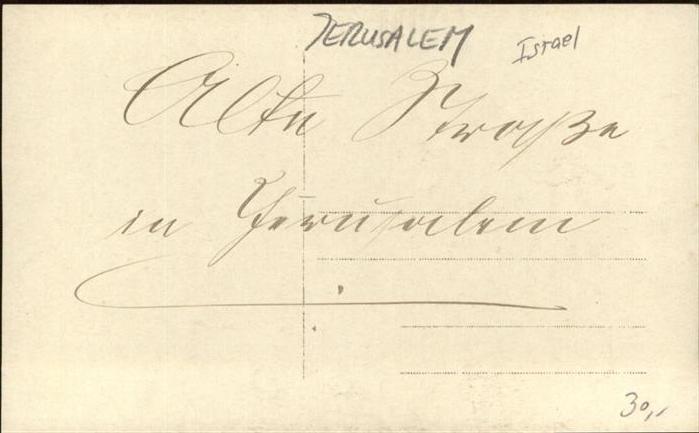 JERUSALEM Israel
Alte Straße
in Jerusalem.
30,,